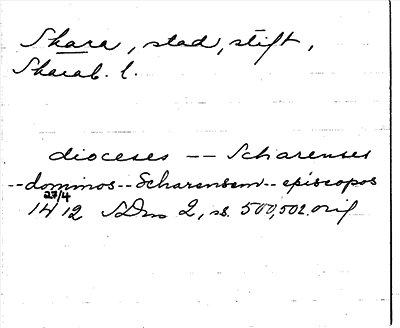 Skara, stad, stift,
Skarab. l.
dioceses -- Scharenses
-- dominos -- Scharensem -- episcopos
27/4
1412 SDns 2, ss. 500, 502. orig